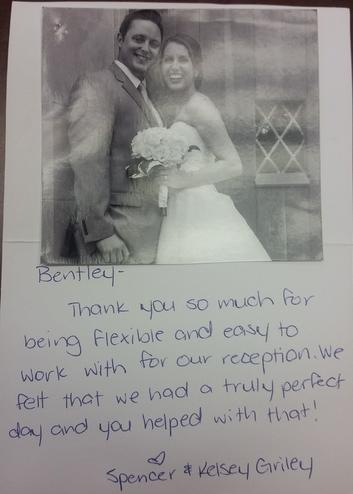 Bentley-
Thank you so much for
being flexible and easy to
work with for our reception. We
felt that we had a truly perfect
day and you helped with that!
Spencer & Kelsey Griley